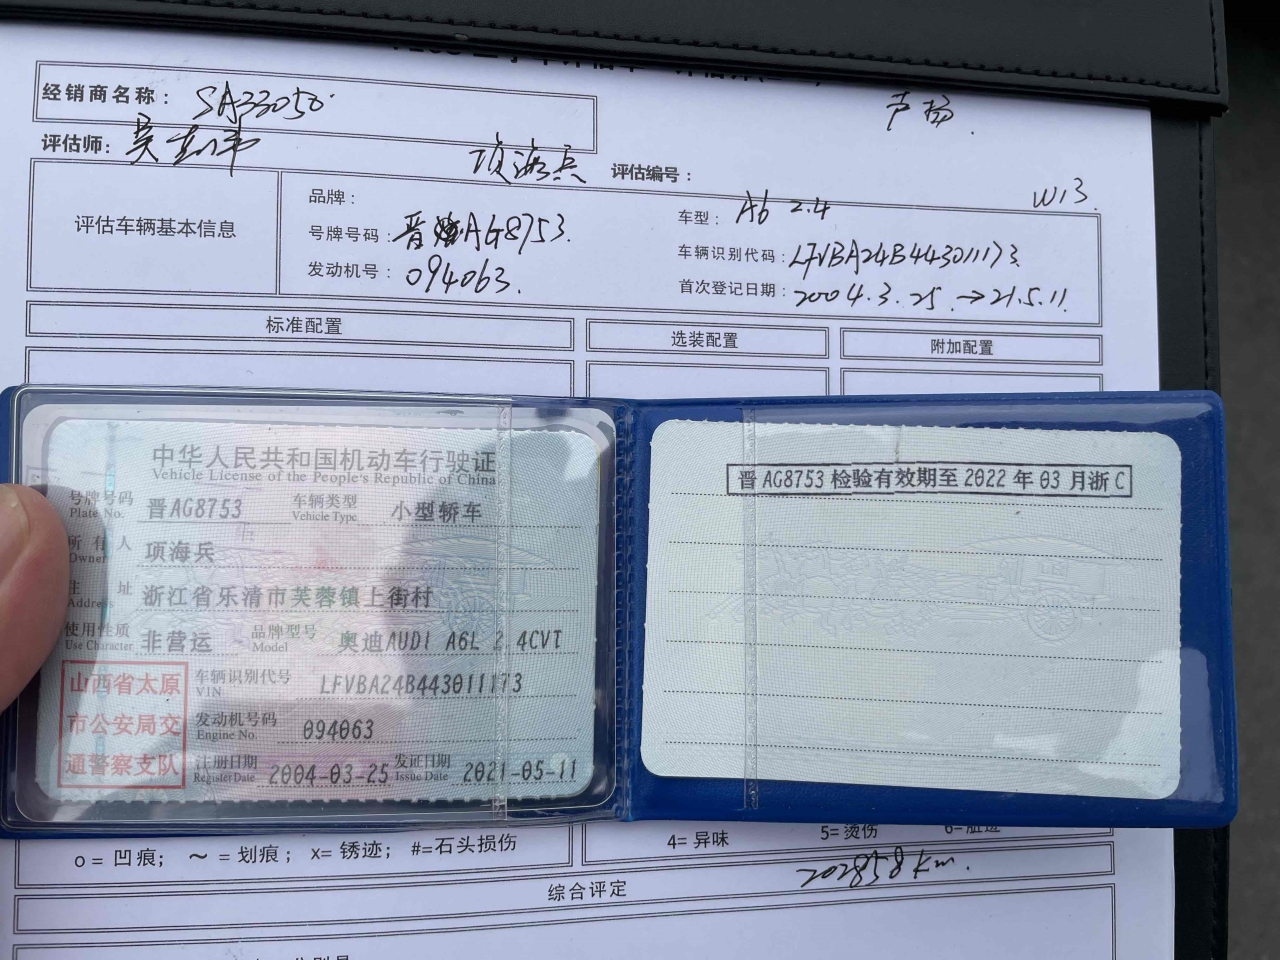 经销商名称： SA33050
芦杨.
评估师： 项海兵 评估编号：
W13.
评估车辆基本信息
品牌： 车型： A6 2.4
号牌号码： 晋AG8753. 车辆识别代码： LFVBA24B443011173
发动机号： 094063. 首次登记日期： 2004.3.25 →21.5.11.
标准配置 选装配置 附加配置
中华人民共和国机动车行驶证
Vehicle License of the People's Republic of China
号牌号码 晋AG8753 车辆类型 小型轿车
Plate No. Vehicle Type
所有人 项海兵
Owner
住址 浙江省乐清市芙蓉镇上街村
Address
使用性质 非营运 品牌型号 奥迪AUDI A6L 2.4CVT
Use Character Model
山西省太原
市公安局交
通警察支队
车辆识别代号 LFVBA24B443011173
VIN
发动机号码 094063
Engine No.
注册日期 2004-03-25 发证日期 2021-05-11
Register Date Issue Date
晋AG8753检验有效期至2022年03月浙C
o = 凹痕； ～ = 划痕； x= 锈迹； #=石头损伤
4= 异味 5= 烫伤
202858km.
综合评定